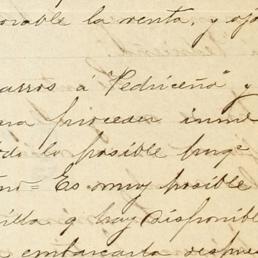 orable la venta, y
arros á "Pedriceña" y
ra proceder inme
todo lo posible
no = Es muy posible
illa q hay disponible
embarcarla despues